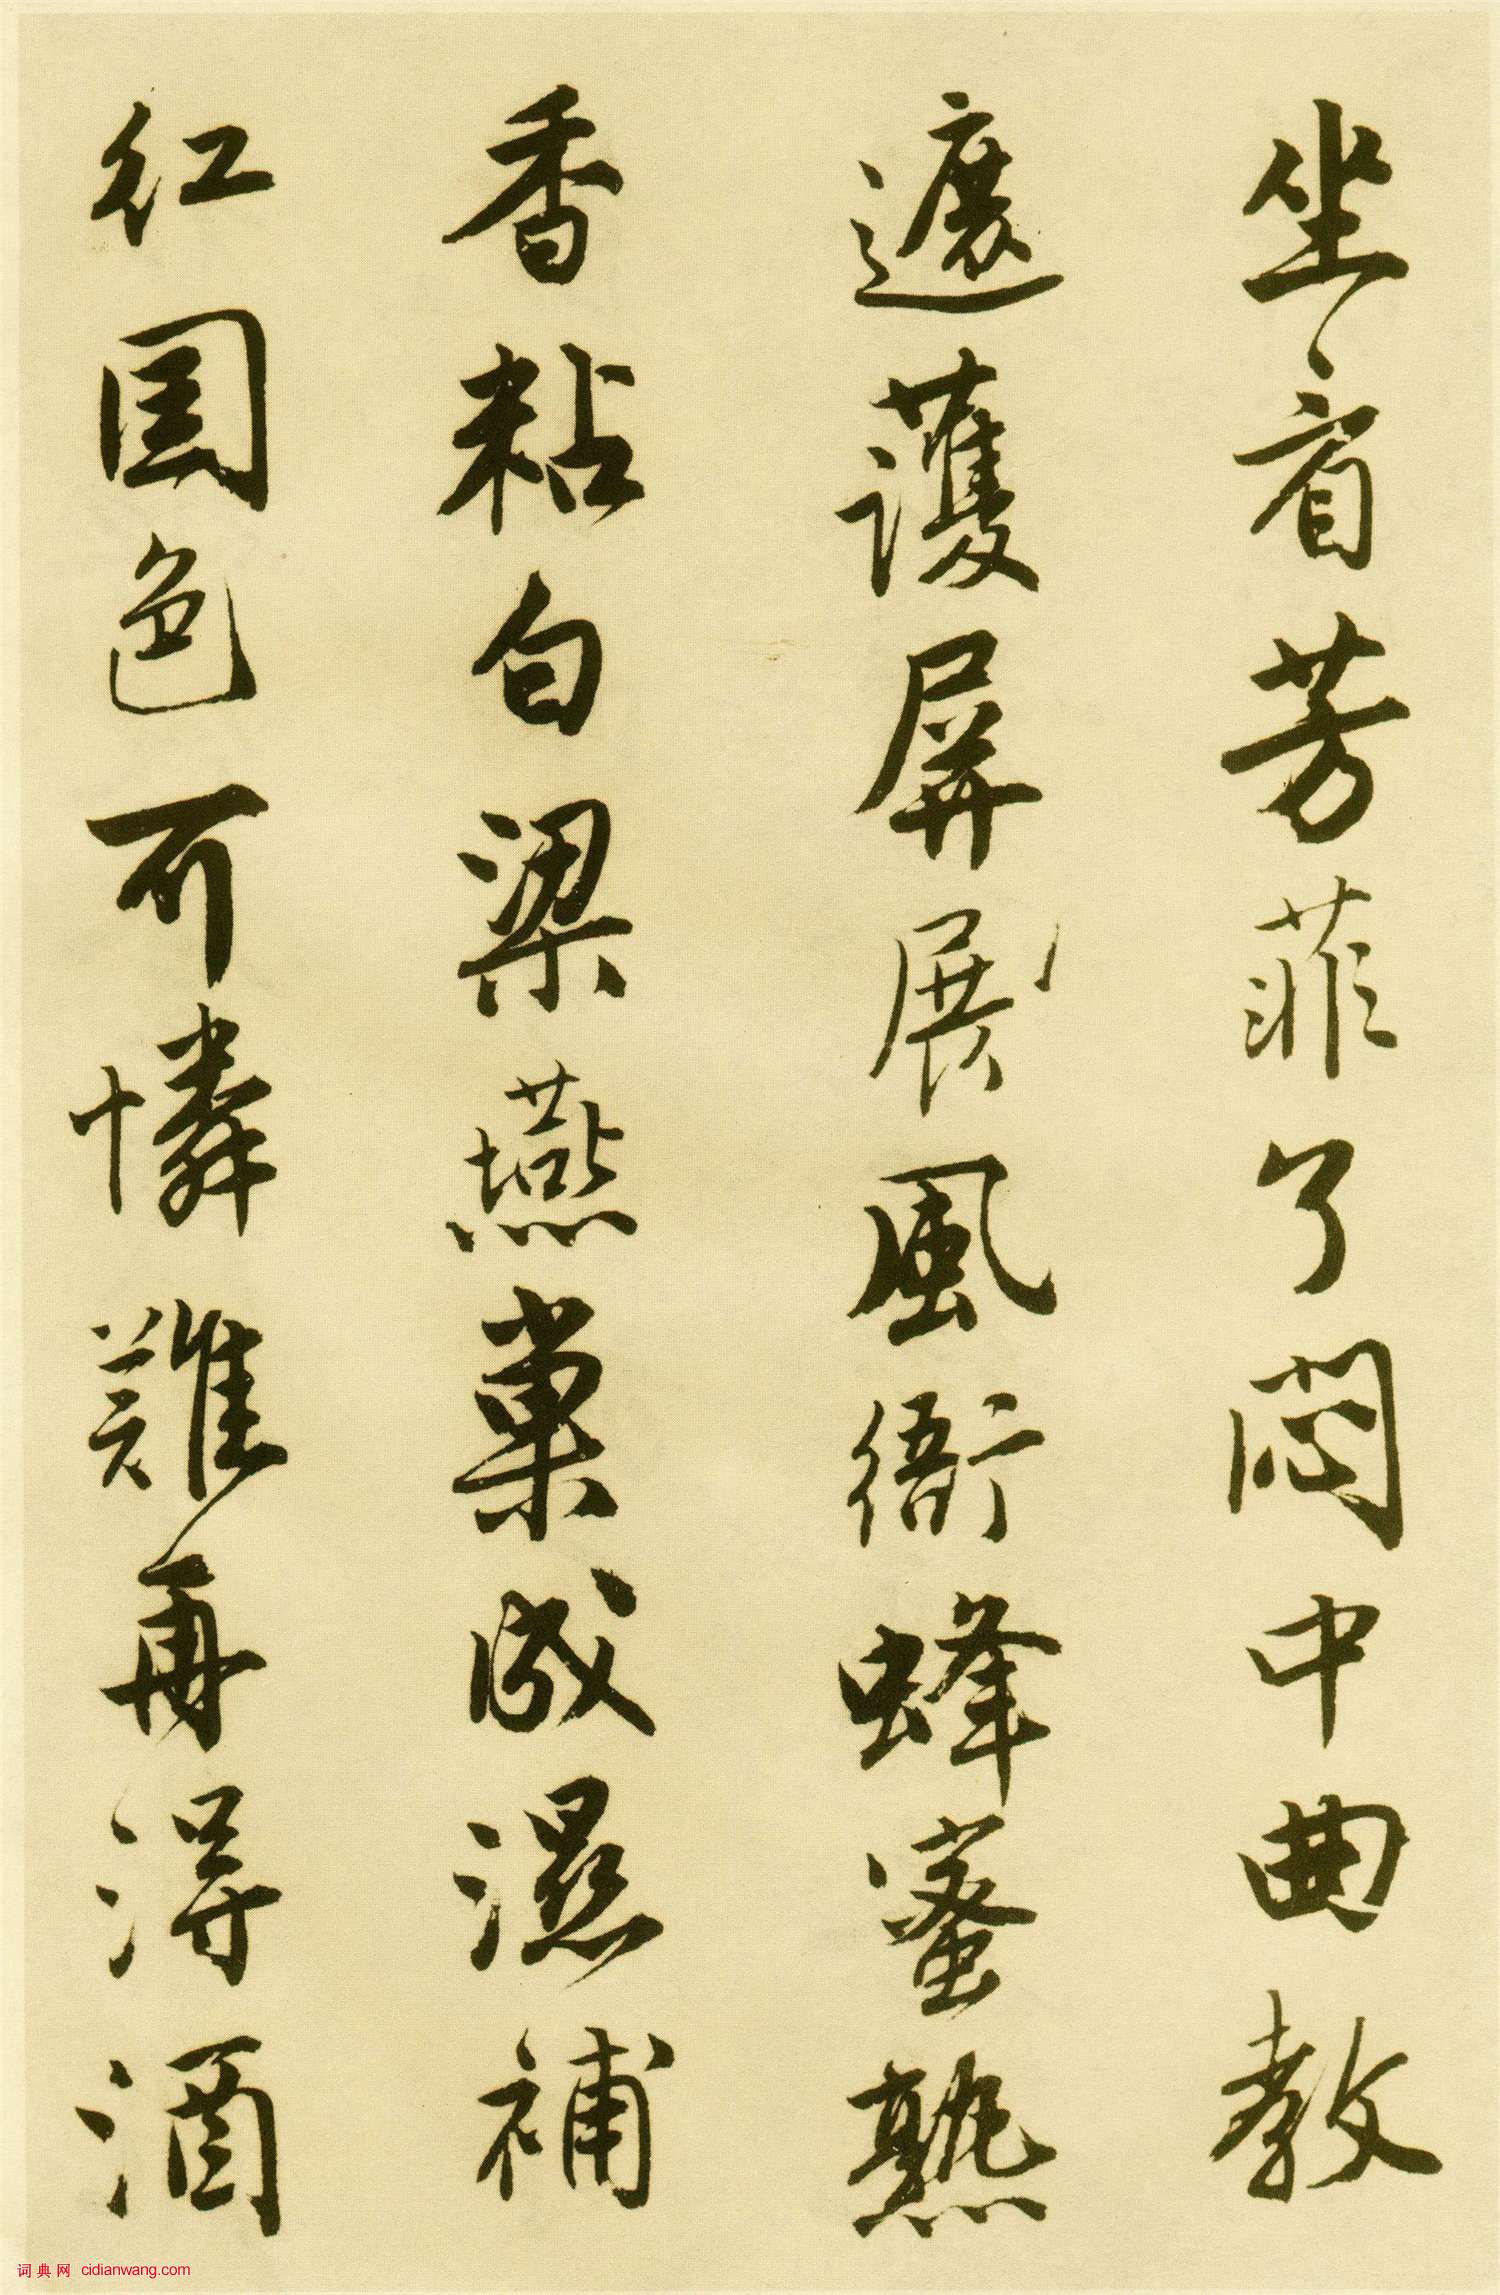 坐看芳菲了悶中曲教
遮護屏展風衙蜂蜜熟
香粘白梁燕巢成濕補
紅國色可憐難再得酒
词典网 cidianwang.com